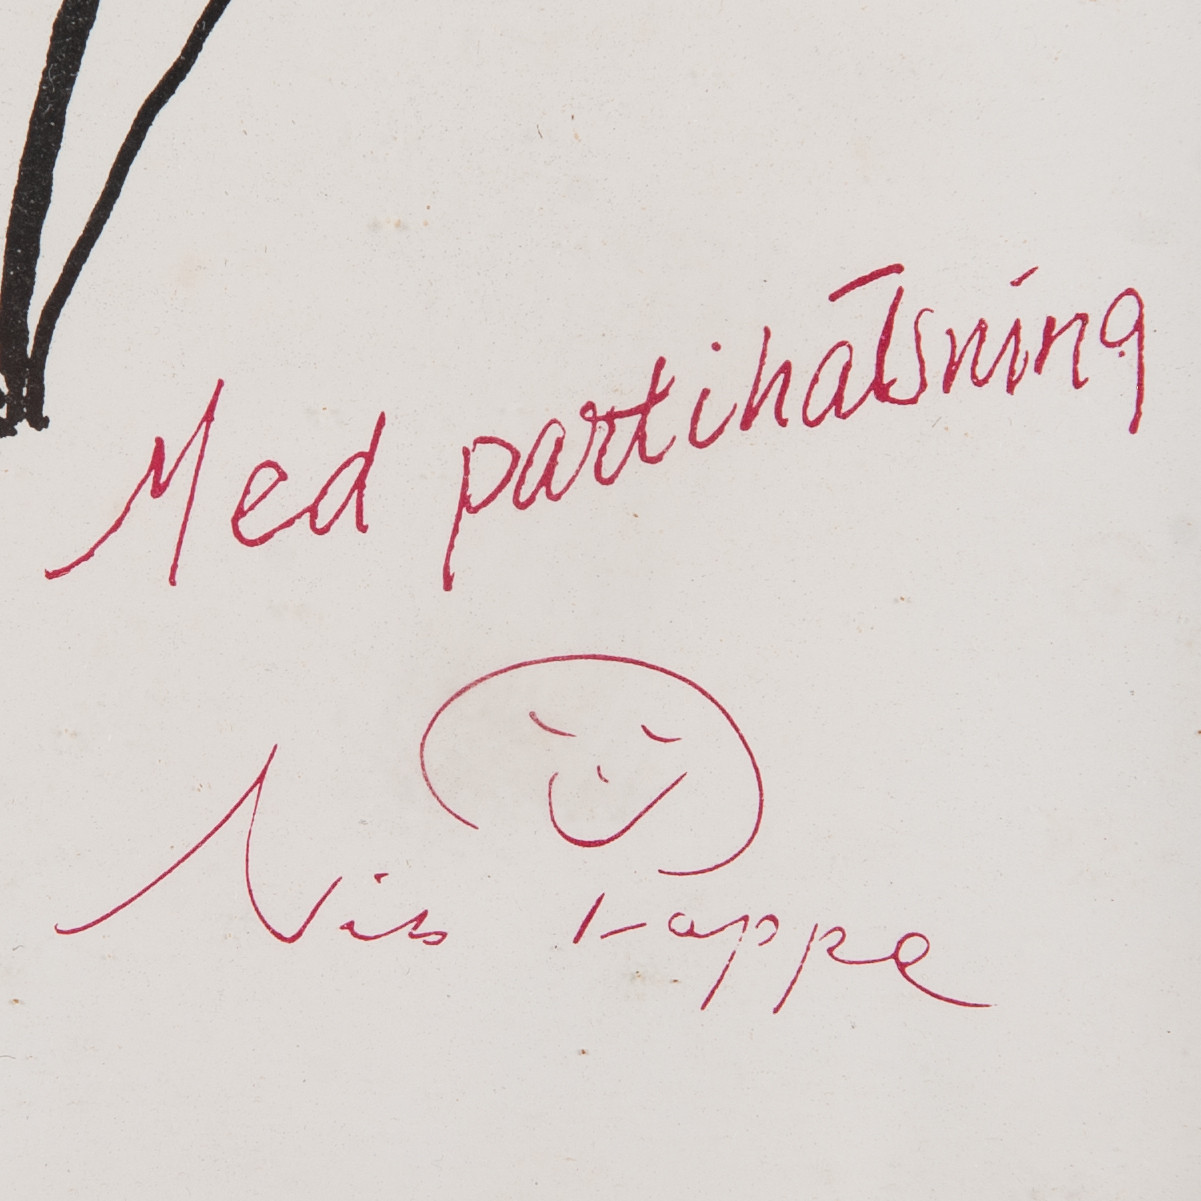 Med partihälsning
Nis Kappe